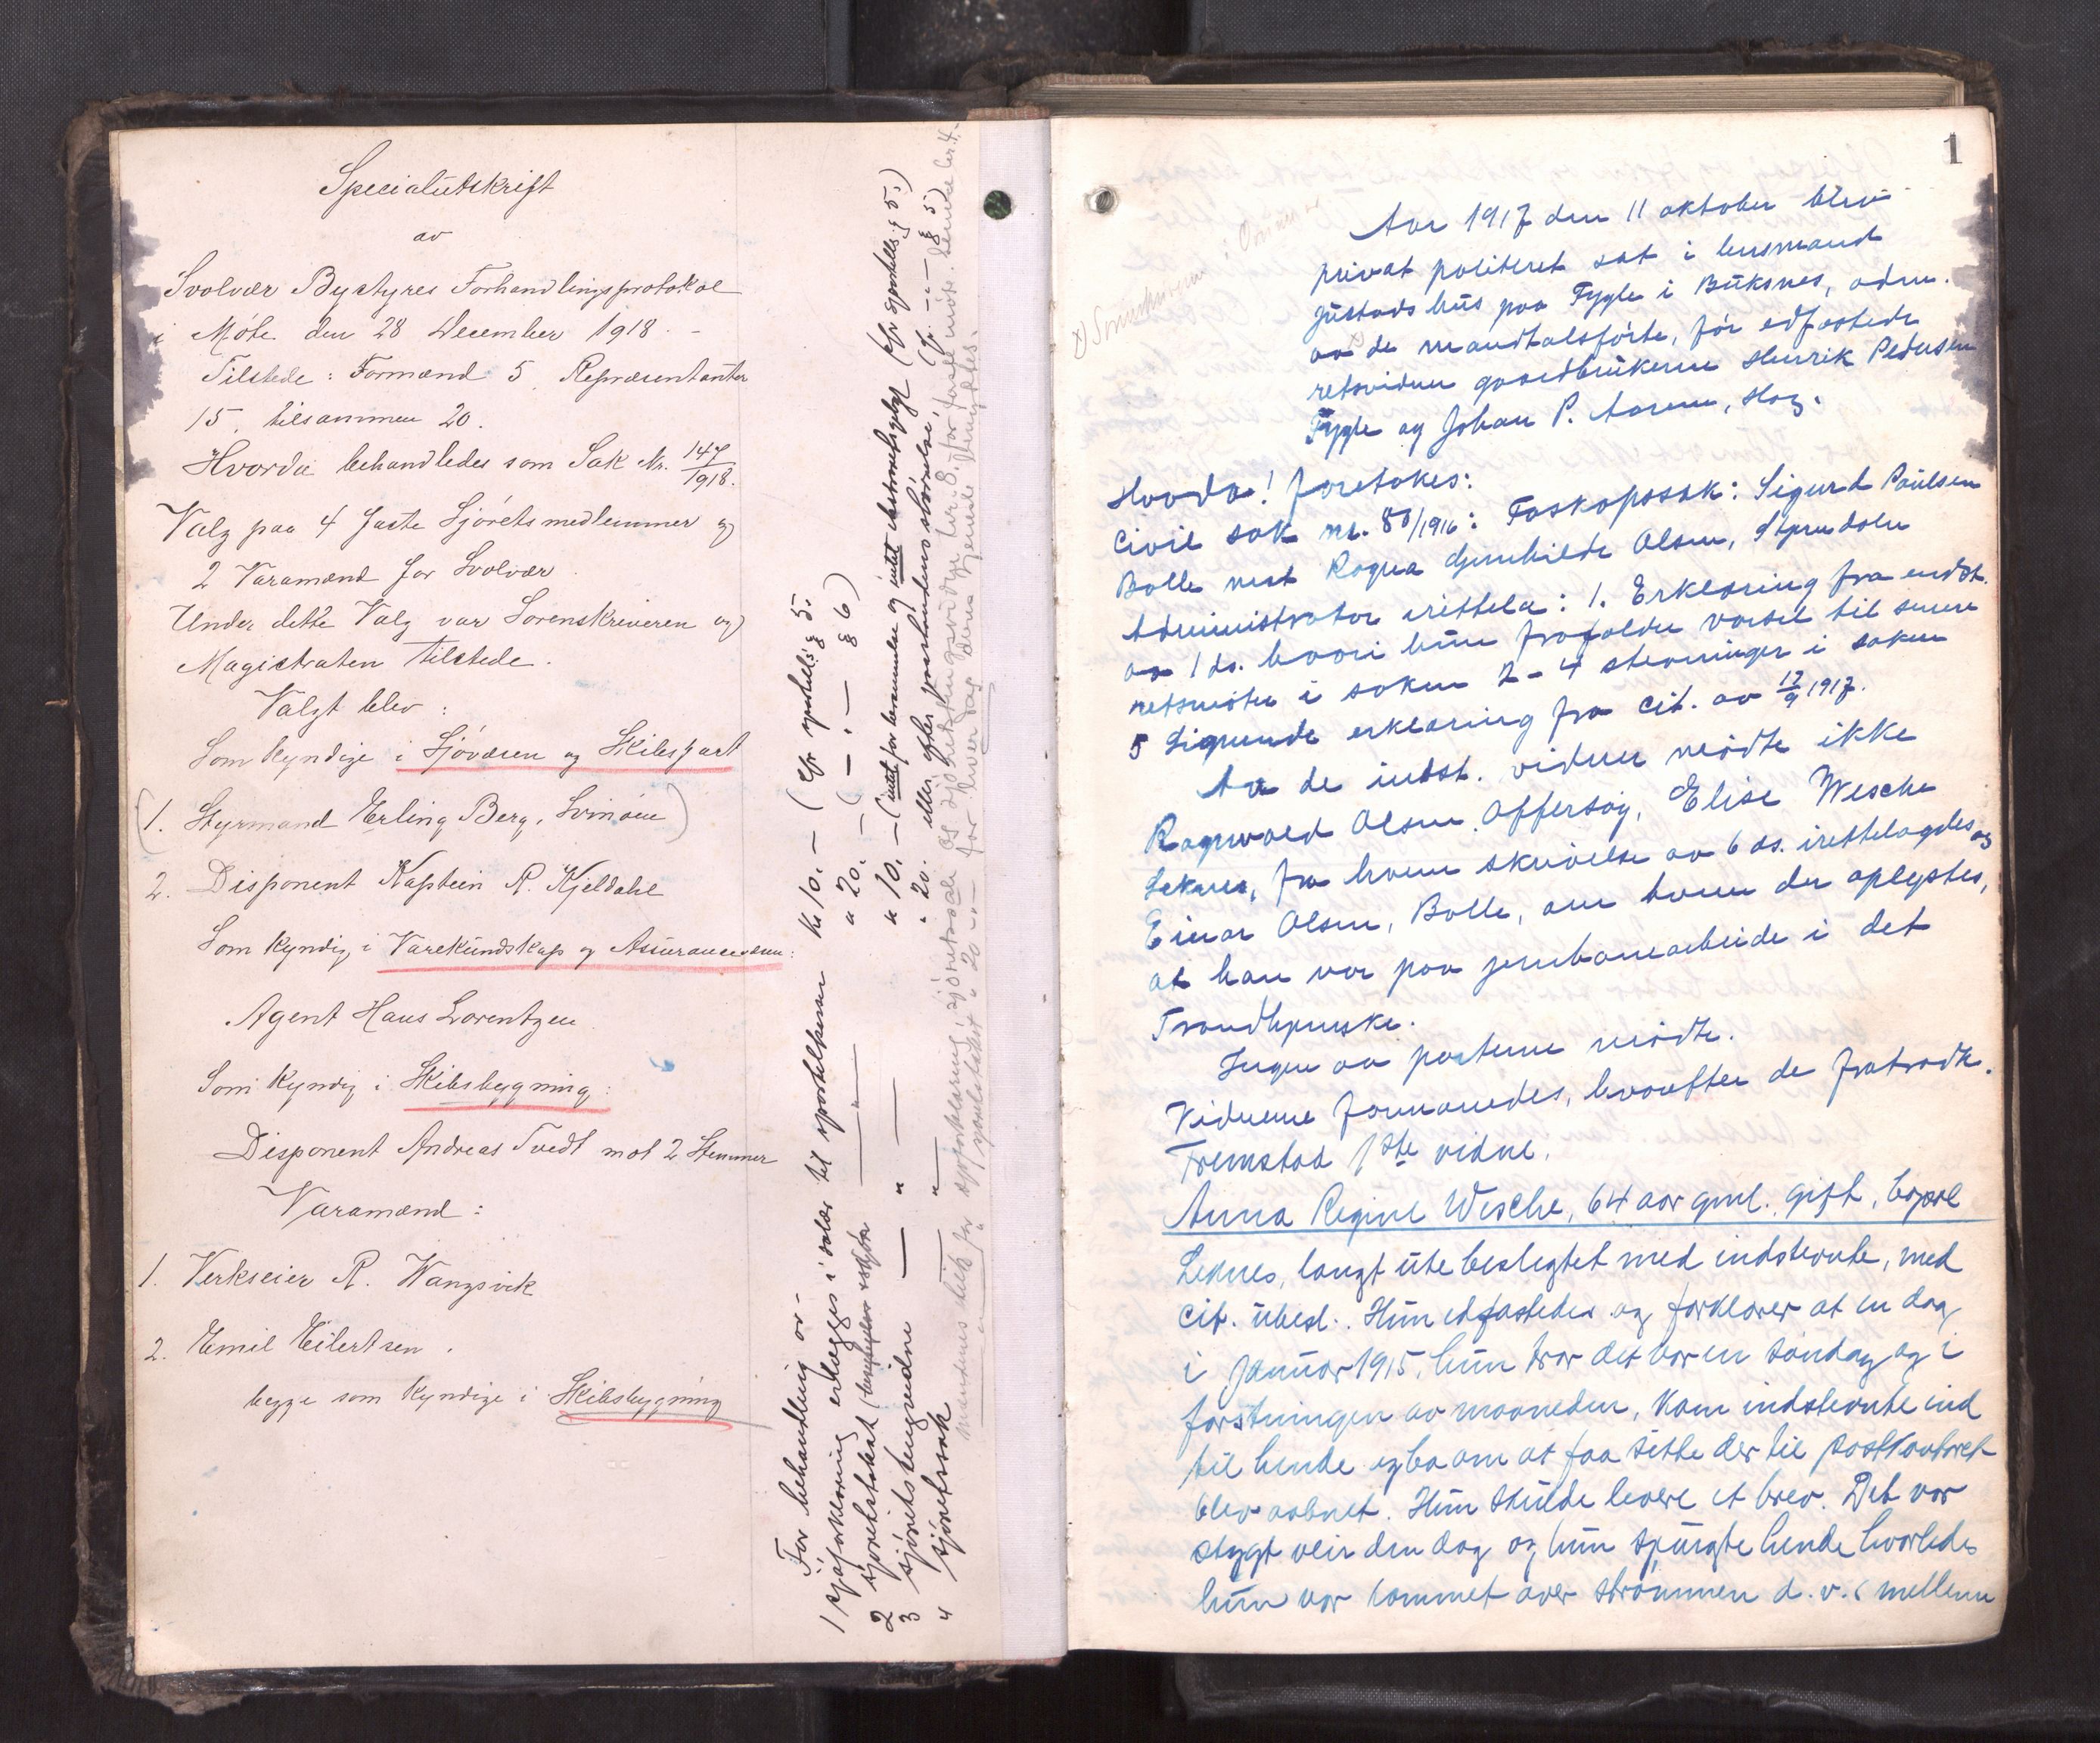 Specialutskrift
av
Svolvær Bystyres Forhandlingsprotokol
i Møte den 28 December 1918. -
Tilstede: Formænd 5, Repræsentanter
15, tilsammen 20.
Hvorda behandledes som Sak Nr. 147/1918.
Valg paa 4 faste Sjøretsmedlemmer og
2 Varamænd for Svolvær
Under dette Valg var Sorenskriveren og
Magistraten tilstede.
Valgt blev:
Som kyndige i Sjøvæsen og Skibsfart
(1. Styrmand Erling Berg, Svinøen)
2. Disponent Kaptein R. Kjeldahl
Som kyndig i Varekundskap og Assurancevæsen:
Agent Hans Lorentzen
Som kyndig i Skibsbygning:
Disponent Andreas Tvedt mot 2 Stemmer
Varamænd:
1. Verkseier R. Wangsvik
2. Emil Eilertsen.
begge som kyndige i Skibsbygning
For behandling av -
1 sjøforklaring erlægges i salær til sportelkassen kr 10. - (cfr sportells. § 5.
2 sjøretsskat " 20. - ( - . - § 6)
3 sjørets tengsvidne " " 10. - (intet for berammelse og intet retsgebyr (cfr sportells. § 5.)
4 sjøretssak " " 20.
1
Aar 1917 den 11 oktober blev
privat politiret sat i lensmand
Justads hus paa Fygle i Buksnes, adm.
av de mandtalsførte, før edfæstede
retsvidner gaardbrukerne Henrik Pedersen
Fygle og Johan P. Aasen, Hag.
Hvorda! foretokes:
Civil sak nr. 88/1916: Farskapssak: Sigurd Paulsen
Bolle mot Ragna Gunhilde Olsen, Steprudalen
Administrator irettela: 1. Erklæring fra indst.
av 1 ds. hvori hun frafalder varsel til senere
retsmøter i saken 2-4 stevninger i saken
5 Lignende erklæring fra cit. av 17/9 1917.
Av de indst. vidner mødte ikke
Ragnvald Olsen Offersøy, Elise Wesche
Leknes, fra hvem skrivelse av 6 ds. irettelagdes og
Einar Olsen, Bolle, om hvem der oplystes,
at han var paa jernbanearbeide i det
Trondhjemske.
Ingen av parterne mødte.
Vidnerne formanedes, hvorefter de fratraadte.
Fremstod 1ste vidne.
Anna Regine Wesche, 64 aar gml., gift, bopæl
Leknes, langt ute beslegtet med indstevnte, med
cit. ubesl. Hun edfæstedes og forklarer at en dag
i januar 1915, hun tror det var en søndag og i
førstningen av maaneden, kom indstevnte ind
til hende og ba om at faa sitte der til postkontoret
blev aabnet. Hun skulde levere et brev. Det var
stygt veir den dag og hun spurgte hende hvorledes
hun var kommet over strømmen d. v. s. mellem